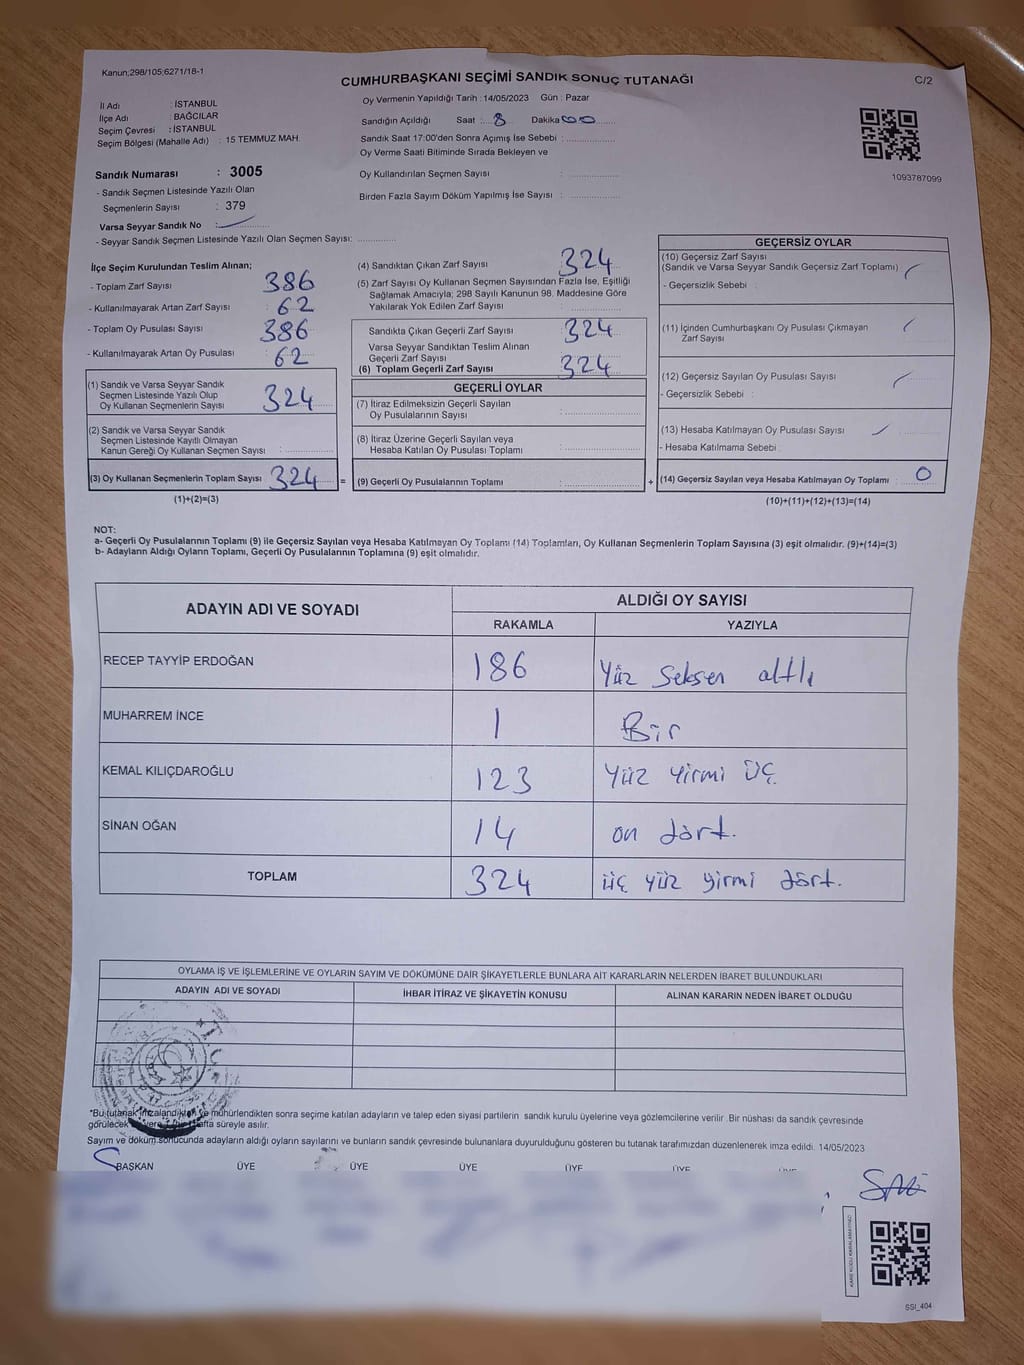 Kanun;298/105;6271/18-1
CUMHURBAŞKANI SEÇİMİ SANDIK SONUÇ TUTANAĞI
C/2
İl Adı : İSTANBUL
İlçe Adı : BAĞCILAR
Seçim Çevresi : İSTANBUL
Seçim Bölgesi (Mahalle Adı) : 15 TEMMUZ MAH.
Sandık Numarası : 3005
- Sandık Seçmen Listesinde Yazılı Olan
Seçmenlerin Sayısı : 379
Varsa Seyyar Sandık No :
- Seyyar Sandık Seçmen Listesinde Yazılı Olan Seçmen Sayısı:
Oy Vermenin Yapıldığı Tarih : 14/05/2023 Gün : Pazar
Sandığın Açıldığı Saat : 8 Dakika 00
Sandık Saat 17:00'den Sonra Açımış İse Sebebi :
Oy Verme Saati Bitiminde Sırada Bekleyen ve
Oy Kullandırılan Seçmen Sayısı :
Birden Fazla Sayım Döküm Yapılmış İse Sayısı :
1093787099
İlçe Seçim Kurulundan Teslim Alınan;
- Toplam Zarf Sayısı : 386
- Kullanılmayarak Artan Zarf Sayısı : 62
- Toplam Oy Pusulası Sayısı : 386
- Kullanılmayarak Artan Oy Pusulası : 62
(1) Sandık ve Varsa Seyyar Sandık
Seçmen Listesinde Yazılı Olup
Oy Kullanan Seçmenlerin Sayısı : 324
(2) Sandık ve Varsa Seyyar Sandık
Seçmen Listesinde Kayıtlı Olmayan
Kanun Gereği Oy Kullanan Seçmen Sayısı :
(3) Oy Kullanan Seçmenlerin Toplam Sayısı : 324
(1)+(2)=(3)
=
(4) Sandıktan Çıkan Zarf Sayısı : 324
(5) Zarf Sayısı Oy Kullanan Seçmen Sayısından Fazla İse, Eşitliği
Sağlamak Amacıyla; 298 Sayılı Kanunun 98. Maddesine Göre
Yakılarak Yok Edilen Zarf Sayısı :
Sandıkta Çıkan Geçerli Zarf Sayısı : 324
Varsa Seyyar Sandıktan Teslim Alınan
Geçerli Zarf Sayısı :
(6) Toplam Geçerli Zarf Sayısı : 324
GEÇERLİ OYLAR
(7) İtiraz Edilmeksizin Geçerli Sayılan
Oy Pusulalarının Sayısı :
(8) İtiraz Üzerine Geçerli Sayılan veya
Hesaba Katılan Oy Pusulaları Toplamı :
(9) Geçerli Oy Pusulalarının Toplamı :
+
GEÇERSİZ OYLAR
(10) Geçersiz Zarf Sayısı
(Sandık ve Varsa Seyyar Sandık Geçersiz Zarf Toplamı) :
- Geçersizlik Sebebi :
(11) İçinden Cumhurbaşkanı Oy Pusulası Çıkmayan
Zarf Sayısı :
(12) Geçersiz Sayılan Oy Pusulası Sayısı :
- Geçersizlik Sebebi :
(13) Hesaba Katılmayan Oy Pusulası Sayısı :
- Hesaba Katılmama Sebebi :
(14) Geçersiz Sayılan veya Hesaba Katılmayan Oy Toplamı : 0
(10)+(11)+(12)+(13)=(14)
NOT:
a- Geçerli Oy Pusulalarının Toplamı (9) ile Geçersiz Sayılan veya Hesaba Katılmayan Oy Toplamı (14) Toplamları, Oy Kullanan Seçmenlerin Toplam Sayısına (3) eşit olmalıdır. (9)+(14)=(3)
b- Adayların Aldığı Oyların Toplamı, Geçerli Oy Pusulalarının Toplamına (9) eşit olmalıdır.
ADAYIN ADI VE SOYADI ALDIĞI OY SAYISI
RAKAMLA YAZIYLA
RECEP TAYYİP ERDOĞAN 186 Yüz Seksen altı
MUHARREM İNCE 1 Bir
KEMAL KILIÇDAROĞLU 123 Yüz Yirmi Üç
SİNAN OĞAN 14 on dört.
TOPLAM 324 üç yüz yirmi dört.
OYLAMA İŞ VE İŞLEMLERİNE VE OYLARIN SAYIM VE DÖKÜMÜNE DAİR ŞİKAYETLERLE BUNLARA AİT KARARLARIN NELERDEN İBARET BULUNDUKLARI
ADAYIN ADI VE SOYADI İHBAR İTİRAZ VE ŞİKAYETİN KONUSU ALINAN KARARIN NEDEN İBARET OLDUĞU
*Bu tutanak imzalandıktan ve mühürlendikten sonra seçime katılan adayların ve talep eden siyasi partilerin sandık kurulu üyelerine veya gözlemcilerine verilir .Bir nüshası da sandık çevresinde
görülecek bir yere 1 bir hafta süreyle asılır.
Sayım ve döküm sonucunda adayların aldığı oyların sayılarını ve bunların sandık çevresinde bulunanlara duyurulduğunu gösteren bu tutanak tarafımızdan düzenlenerek imza edildi. 14/05/2023
BAŞKAN ÜYE ÜYE ÜYE ÜYE ÜYE ÜYE
KARE KODU KARALAMAYINIZ!
SSI_404